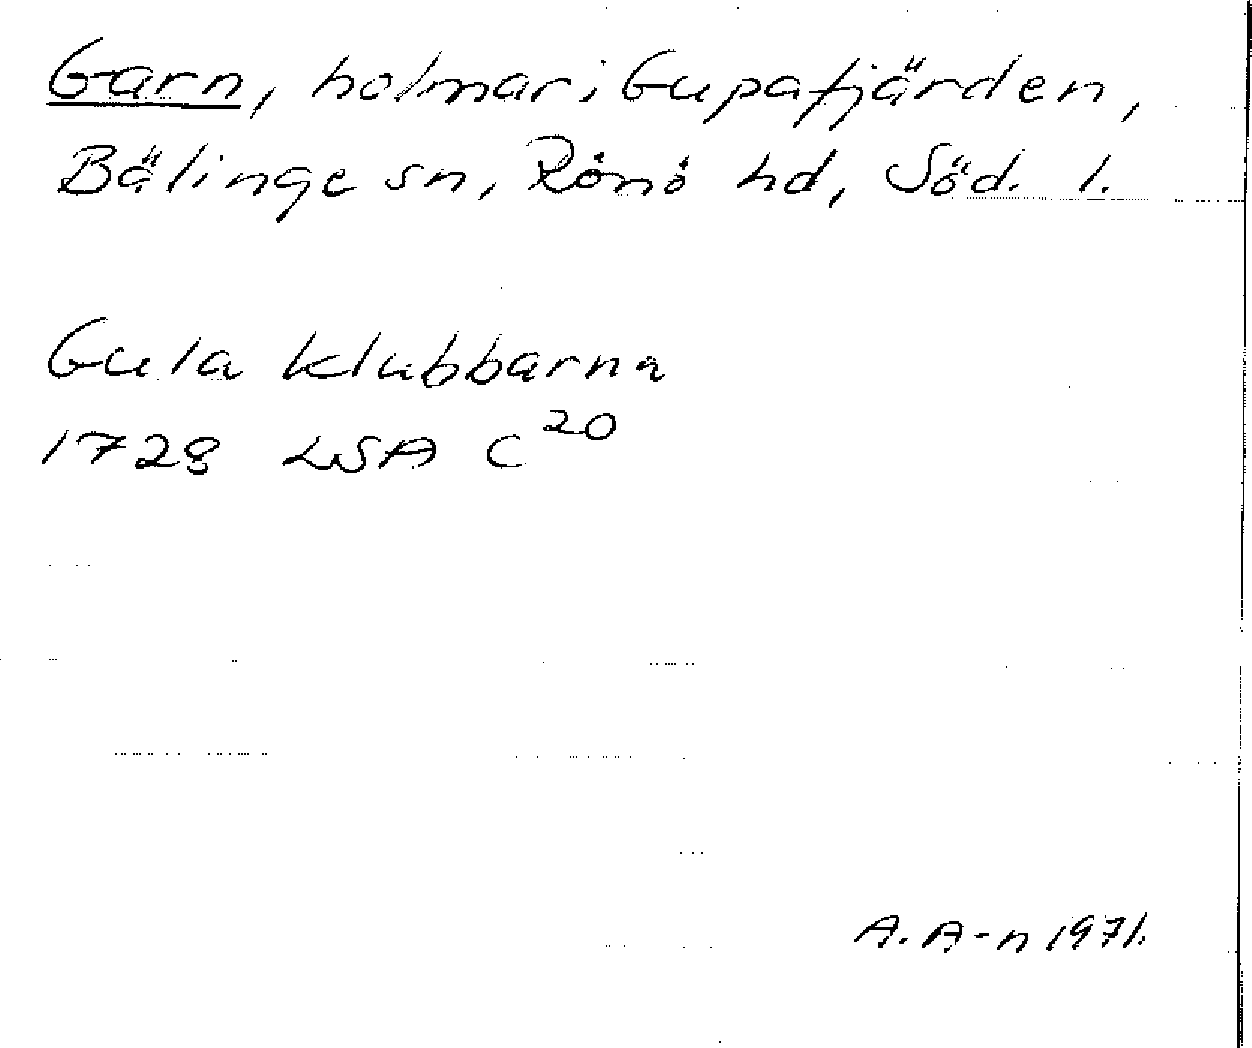 Garn, holmar i Gupafjärden,
Bälinge sn, Rönö hd, Söd. l.
Gula klubbarna
1728 LSA C 20
A. A-n 1971.